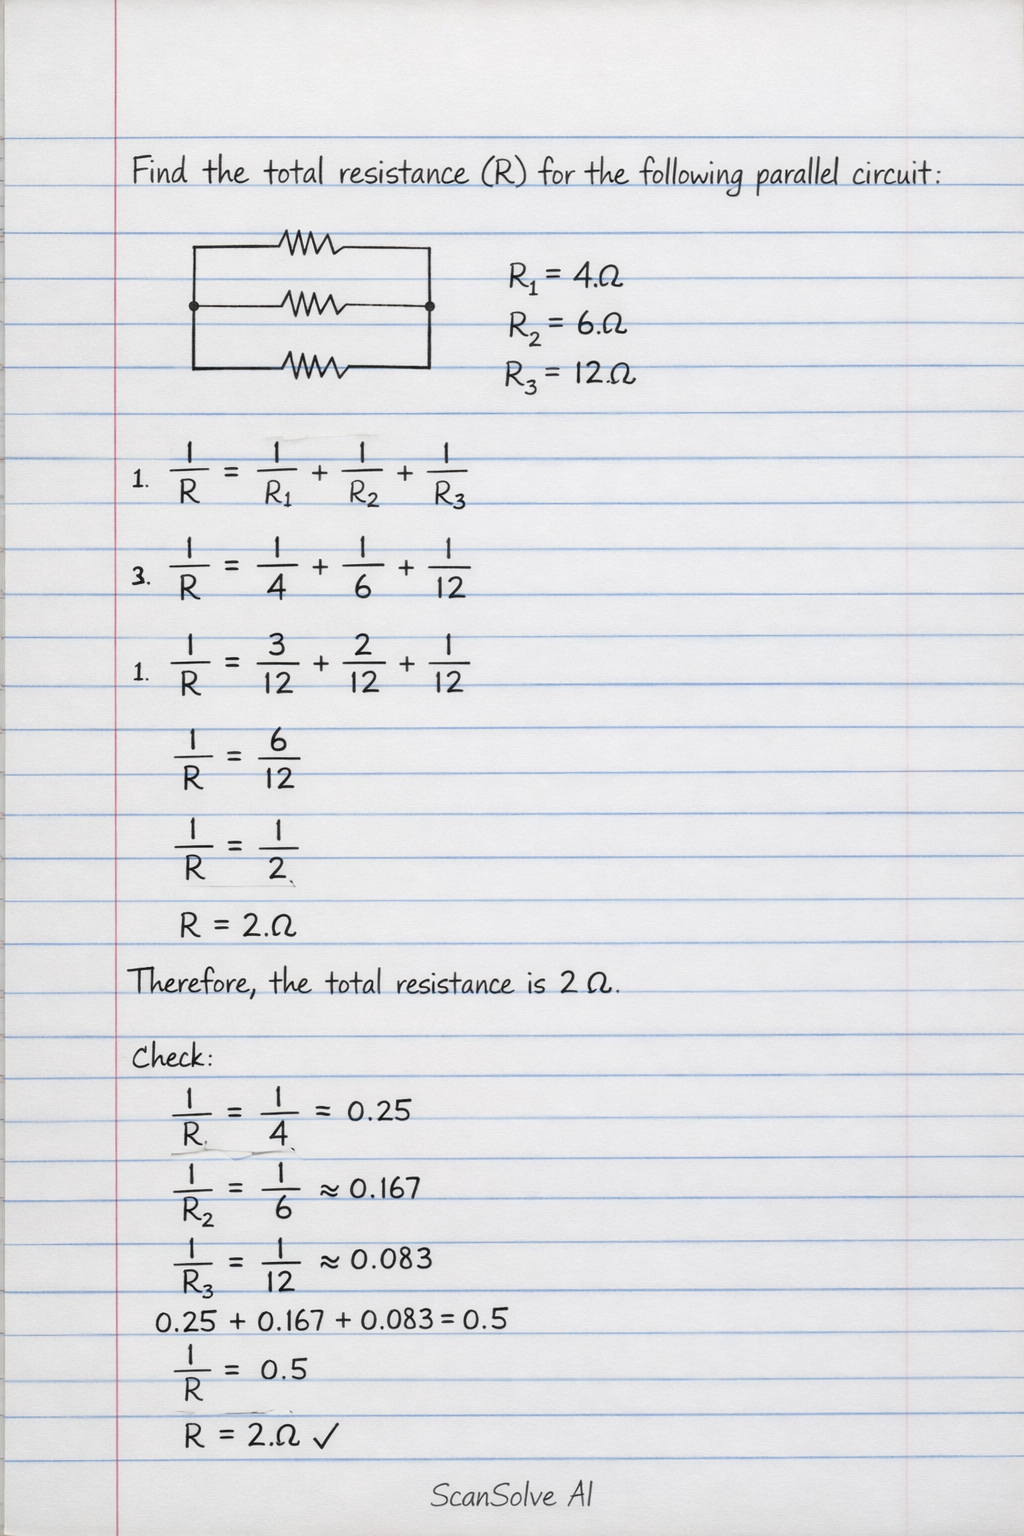 Find the total resistance (R) for the following parallel circuit:
R₁ = 4.Ω
R₂ = 6.Ω
R₃ = 12.Ω
1. 1/R = 1/R₁ + 1/R₂ + 1/R₃
3. 1/R = 1/4 + 1/6 + 1/12
1. 1/R = 3/12 + 2/12 + 1/12
1/R = 6/12
1/R = 1/2
R = 2.Ω
Therefore, the total resistance is 2 Ω.
Check:
1/R. = 1/4 = 0.25
1/R₂ = 1/6 ≈ 0.167
1/R₃ = 1/12 ≈ 0.083
0.25 + 0.167 + 0.083 = 0.5
1/R = 0.5
R = 2.Ω ✓
ScanSolve AI